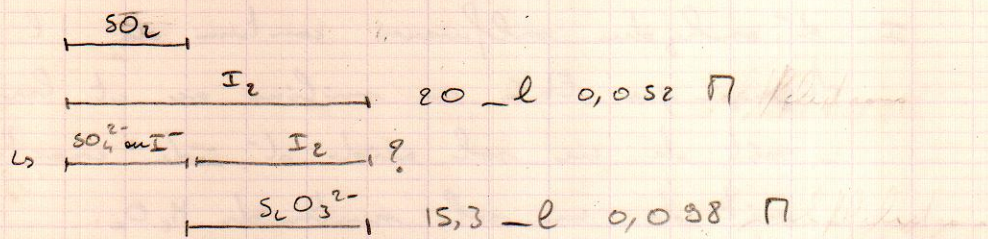 SO₂
I₂ 20 _l 0,052 M
↳ SO₄²⁻ ou I⁻ I₂ ?
S₂O₃²⁻ 15,3 _l 0,098 M